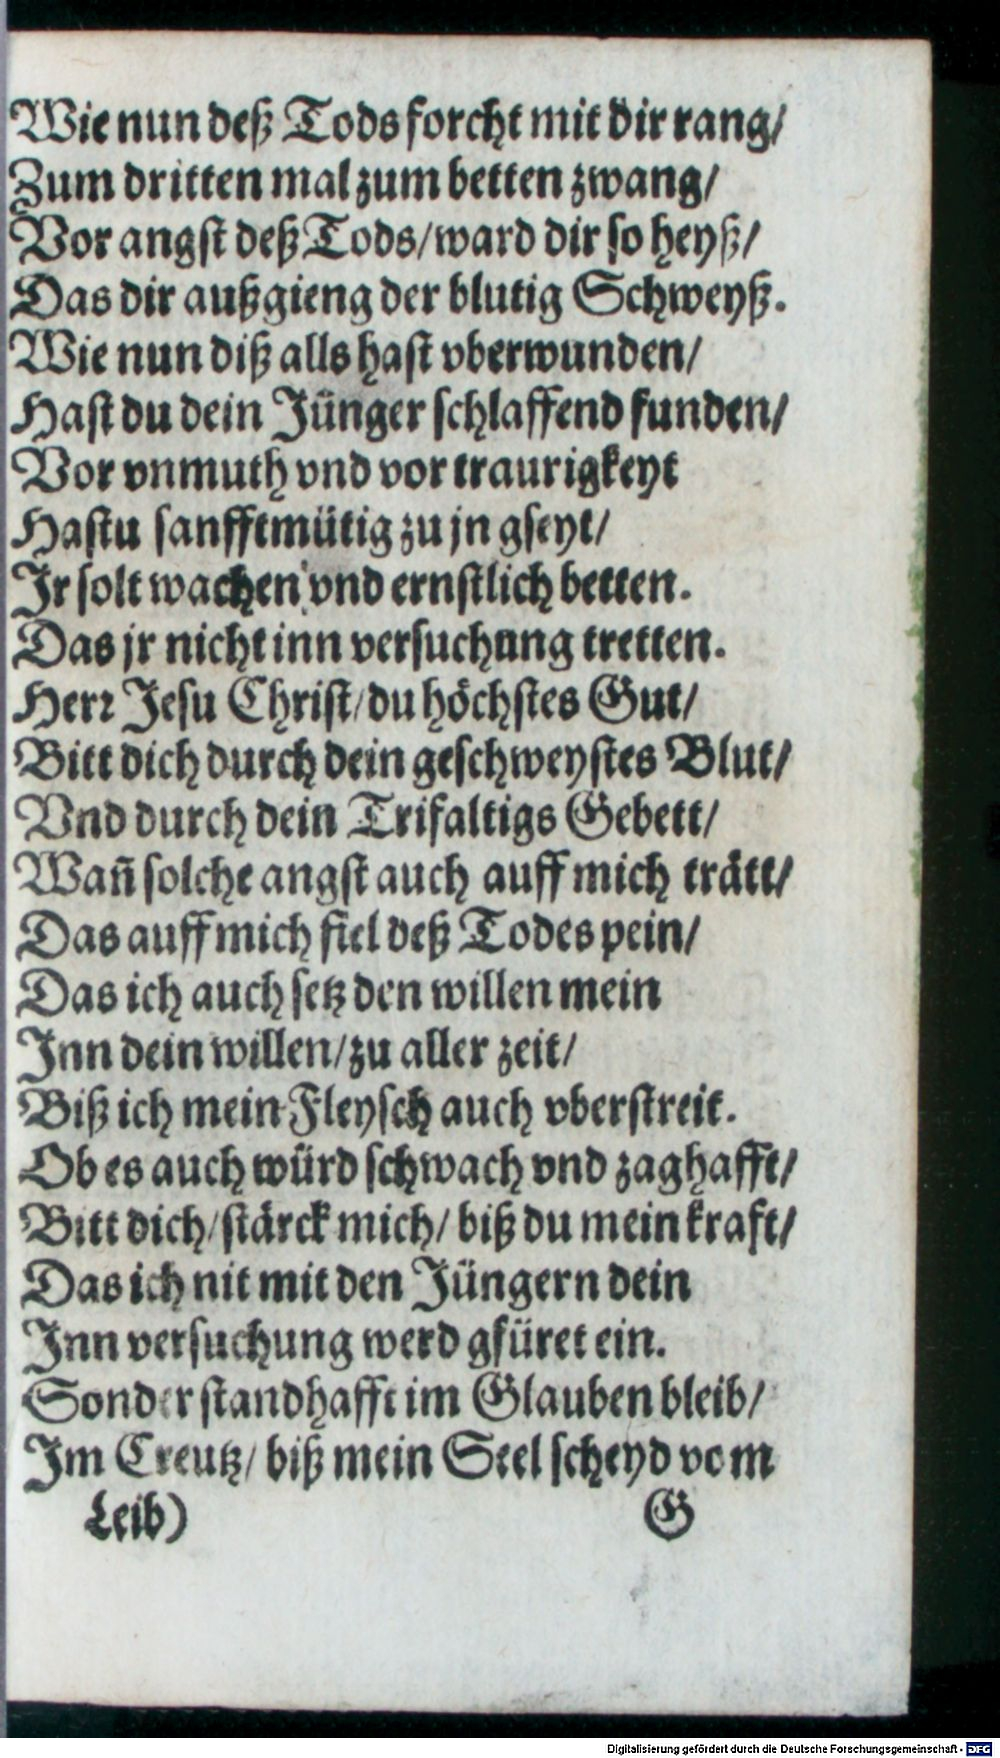 Wie nun deß Tods forcht mit dir rang/
Zum dritten mal zum betten zwang/
Vor angst deß Tods/ward dir so heyß/
Das dir außgieng der blutig Schweyß.
Wie nun diß alls hast vberwunden/
Hast du dein Jünger schlaffend funden/
Vor vnmuth vnd vor traurigkeyt
Hastu sanfftmütig zu jn gseyt/
Jr solt wachen vnd ernstlich betten.
Das jr nicht inn versuchung tretten.
Herr Jesu Christ/du höchstes Gut/
Bitt dich durch dein geschweystes Blut/
Vnd durch dein Trifaltigs Gebett/
Wañ solche angst auch auff mich trätt/
Das auff mich fiel deß Todes pein/
Das ich auch setz den willen mein
Jnn dein willen/zu aller zeit/
Biß ich mein Fleysch auch vberstreit.
Ob es auch würd schwach vnd zaghafft/
Bitt dich/stärck mich/ biß du mein kraft/
Das ich nit mit den Jüngern dein
Jnn versuchung werd gfüret ein.
Sonder standhafft im Glauben bleib/
Jm Creutz/ biß mein Seel scheyd vom
Leib) G
Digitalisierung gefördert durch die Deutsche Forschungsgemeinschaft - DFG